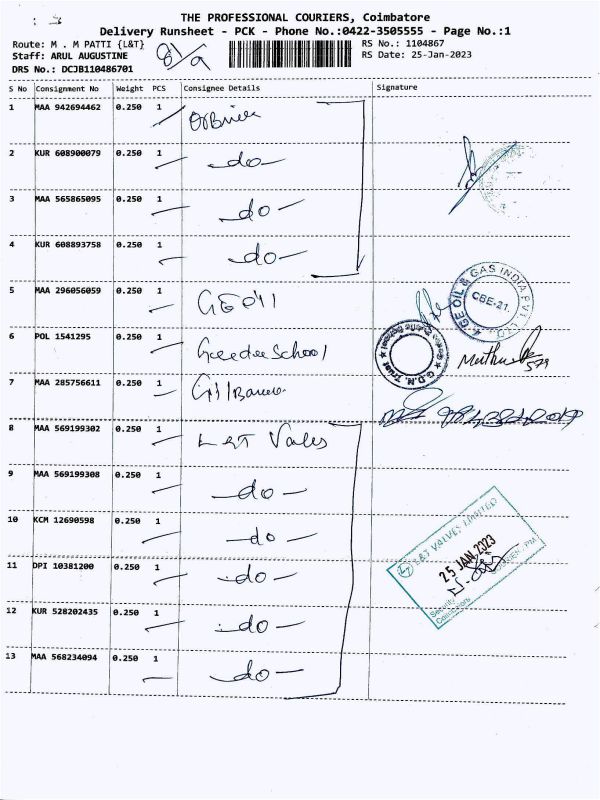 THE PROFESSIONAL COURIERS, Coimbatore
Delivery Runsheet - PCK - Phone No.:0422-3505555 - Page No.:1
Route: M . M PATTI {L&T}
RS No.: 1104867
Staff: ARUL AUGUSTINE
RS Date: 25-Jan-2023
DRS No.: DCJB110486701
S No Consignment No Weight PCS Consignee Details Signature
1 MAA 942694462 0.250 1
2 KUR 608900079 0.250 1 -do-
3 MAA 565865095 0.250 1 -do-
4 KUR 608893758 0.250 1 -do-
5 MAA 296056059 0.250 1
GE OIL & GAS INDIA PVT. LTD.
CBE-21.
6 POL 1541295 0.250 1 School
G.D.N. Trust
7 MAA 285756611 0.250 1
8 MAA 569199302 0.250 1 L&T Valves
9 MAA 569199308 0.250 1 -do-
10 KCM 12690598 0.250 1 -do-
L&T VALVES LIMITED
25 JAN 2023
Security
Coimbatore
11 DPI 10381200 0.250 1 -do-
12 KUR 528202435 0.250 1 -do-
13 MAA 568234094 0.250 1 -do-